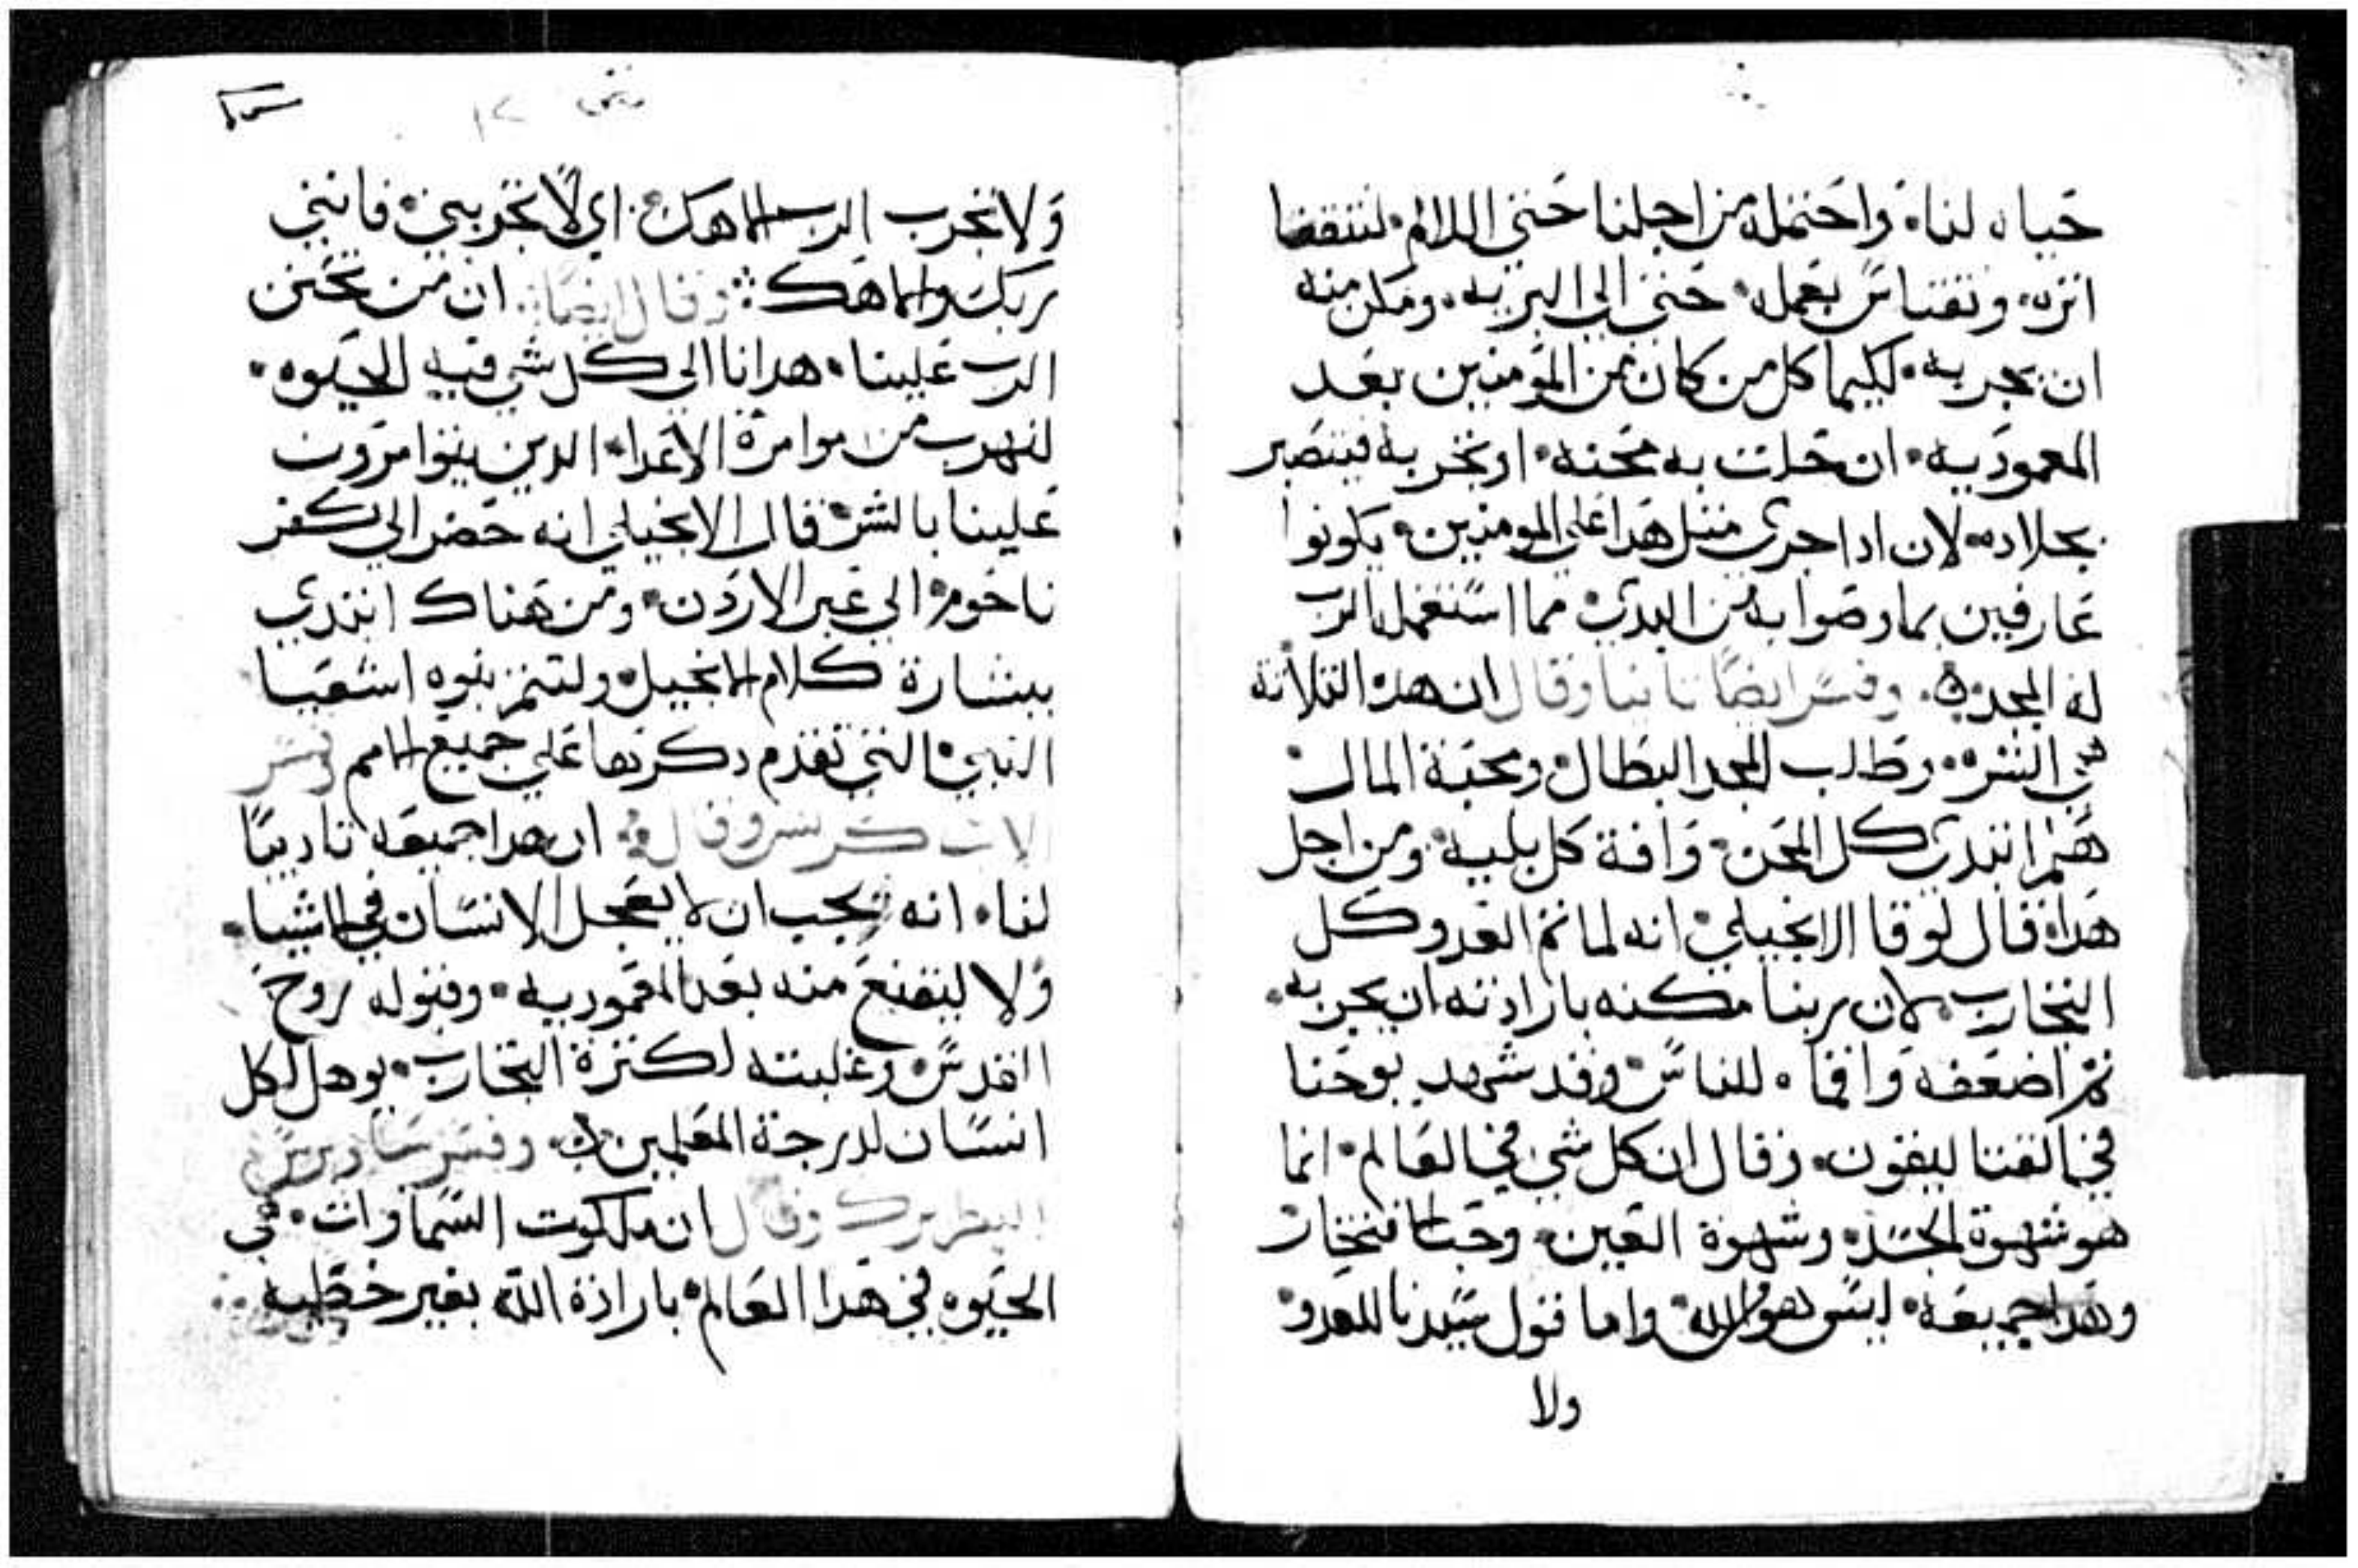 حياه لنا. واحتمله من اجلنا حتي اللالام. لنتقفا
اثره. ونقتاس بعمله. حتي الي البريه. ومكن منه
ان يجربه. لكيما كل من كان من المومنين بعد
المعموديه. ان حلت به محنه. او تجربه فيتصبر
بجلاده. لان ادا جري متل هدا علي المومنين. يكونوا
عارفين بما وصوا به من البدي. مما استعمله الرب
له المجد. وفسر ايضا تانيا وقال ان هده التلاته
هي الشره. وطلب المجد البطال. ومحبة المال.
هم ابتدي كل المحن. وافة كل بليه. ومن اجل
هدا. قال لوقا الانجيلي. انه لما تم العدو كل
التجارب. لان ربنا مكنه بارادته ان يجربه.
تم اضعفه وافماه للناس. وقد شهد يوحنا
في القتاليقون. وقال ان كل شي في العالم. انما
هو شهوة الجسد. وشهوة العين. وحب الافتخار
وهدا جميعه. ليس هو لله. واما قول سيدنا للعدو.
ولا
متي
ولا تجرب الرب الاهك. اي لا تجربني. فانني
ربك والاهك. وقال ايضا. ان من تحنن
الرب علينا. هدانا الي كل شي فيه الحيوه.
لنهرب من موامرة الاعدا. الدين يتوامرون
علينا بالشر. قال الانجيلي انه حضر الي كفر
ناحوم. الي عبر الاردن. ومن هناك ابتدي
ببشارة كلام الانجيل. ولتتم نبوه اشعيا
النبي. التي تقدم دكرها علي جميع الامم فسر
ان هدا جميعه تاديبا
لنا. انه يجب ان لا يعجل الانسان في الاشيا.
ولا ليقنع منه بعد المعموديه. وقبوله روح
القدس. وغلبته لكترة التجارب. يوهل لكل
انسان لدرجة المعلمين. وفسر ساويرس
البطريرك وقال ان ملكوت السماوات. هي
الحيوه في هدا العالم. بارادة الله بغير خطيه